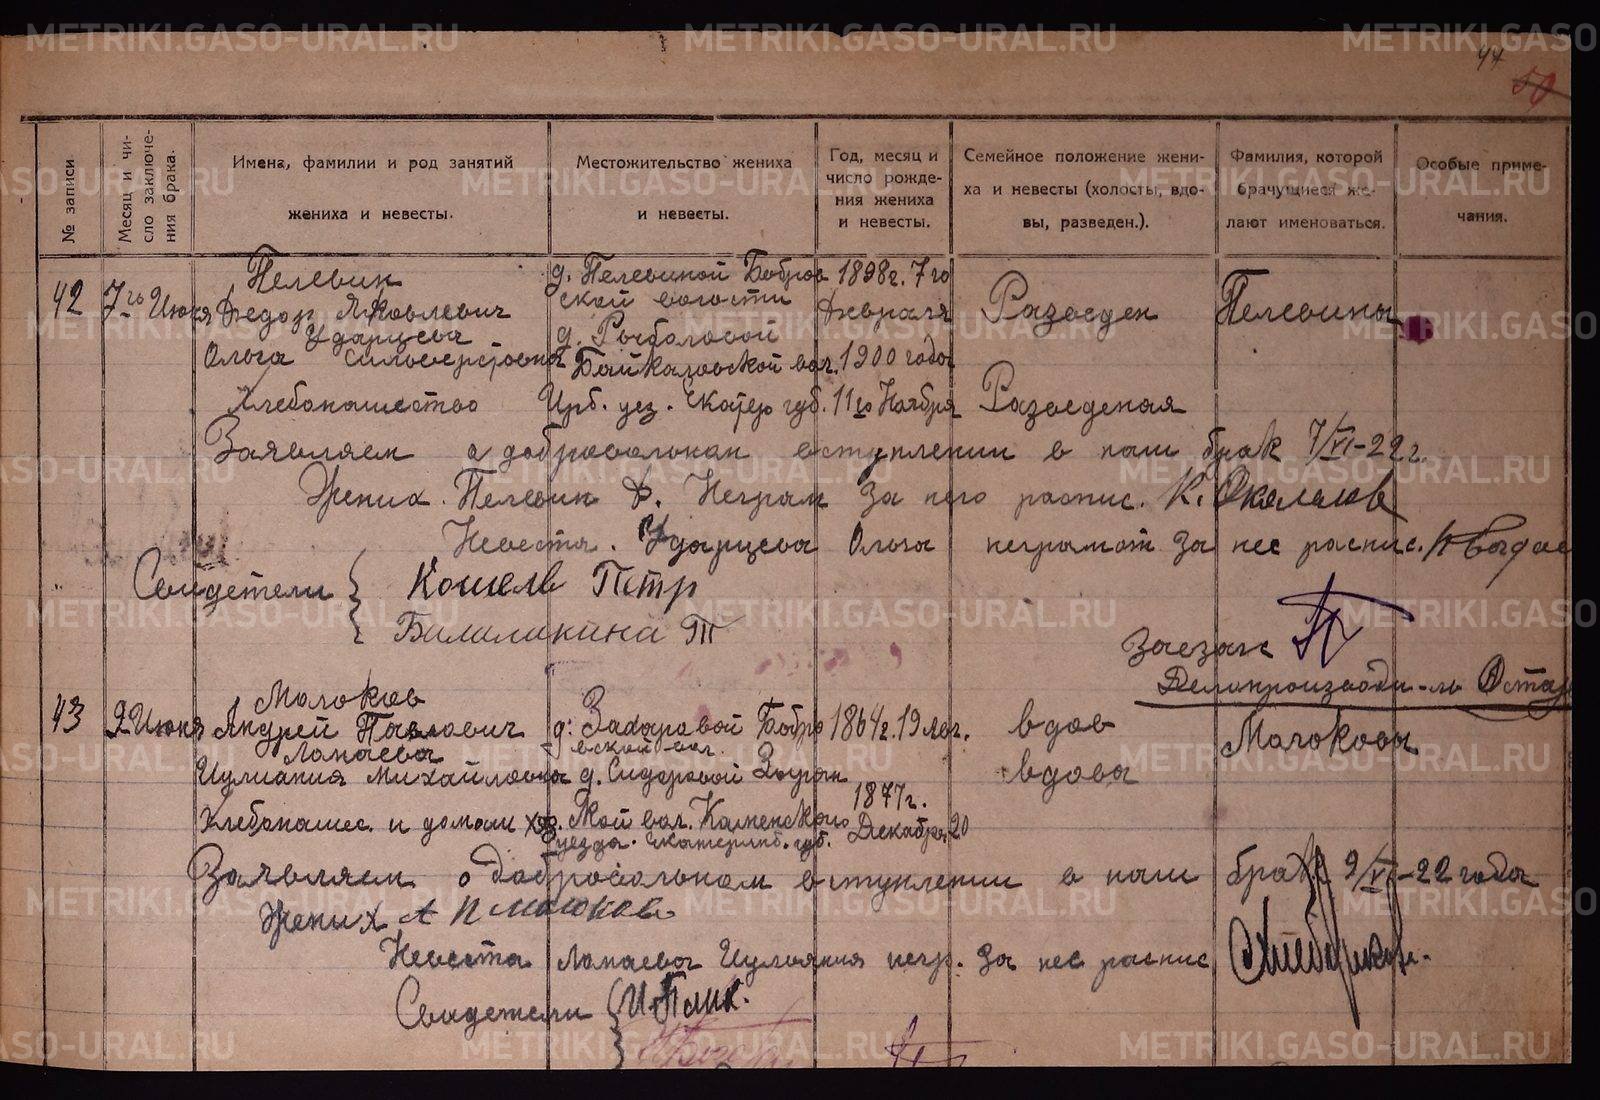 44
50
№ записи
Месяц и чи-
сло заключе-
ния брака.
Имена, фамилии и род занятий
жениха и невесты.
Местожительство жениха
и невесты.
Год, месяц и
число рожде-
ния жениха
и невесты.
Семейное положение жени-
ха и невесты (холосты, вдо-
вы, разведен.).
Фамилия, которой
брачущиеся же-
лают именоваться.
Особые приме-
чания.
42 7го Июня
Пелевин
Федор Яковлевич
Ударцева
Ольга Сильверстровна
Хлебопашество
д. Пелевиной Бобров
ской волости
д. Рыболовой
Байкаловской вол.
Ирб. уез. Екатер губ.
1898г. 7го
Февраля
1900 года
11го Ноября
Разведен
Разведеная
Пелевины
Заявляем о добровольном вступлении в наш брак 7/VI-22г.
Жених. Пелевин Ф. Неграм за него распис.
Невеста. Ударцева Ольга неграмот за нее распис.
Свидетели Кошель Петр
Т
Заезаг
Делопроизводи-ль
43 9 Июня
Молоков
Андрей Павлович
Лопаева
Иулиания Михайловна
Хлебопашес. и домаш хоз.
д. Захаровой Бобро
вской вол.
д. Сидоровой Зырян
ской вол. Каменского
уезда Екатеринб. губ.
1864г. 19 лег.
1877г.
Декабря 20
вдов
вдова
Молоковы
Заявляем о добровольном вступлении в наш брак 9/VI-22 года
Жених А П Молоков
Невеста Лопаева Иульяния негр. за нее распис
Свидетели
METRIKI.GASO-URAL.RU